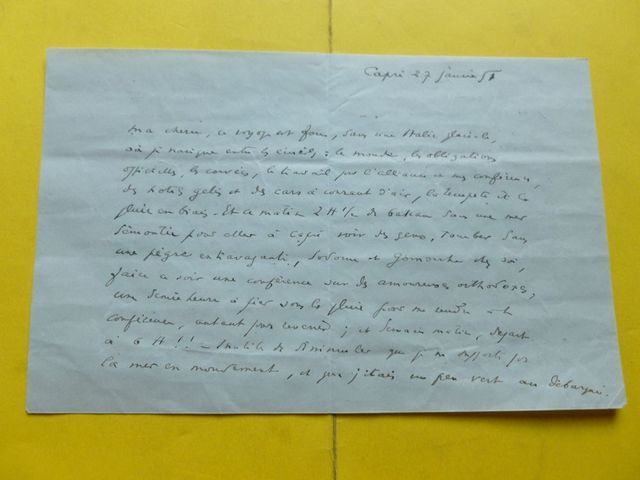 Capri 27 janvier 51
ma chérie, ce voyage est fou, dans une Italie glaciale,
où je navigue entre les écueils : le monde, les obligations
officielles, les corvées, le travail pour l'alliance et mes conférences,
des hôtels gelés et des cars à courant d'air, la tempête et la
pluie en biais. Et ce matin 2 H 1/2 de bateau dans une mer
démontée pour aller à Capri voir des gens, tomber dans
une pègre extravagante, Sodome et Gomorrhe chez soi,
faire ce soir une conférence sur des amoureux orthodoxes,
une demie heure à pied sous la pluie pour me rendre à la
conférence, autant pour revenir ; et demain matin, départ
à 6 H !! – Inutile de dissimuler que je ne supporte pas
la mer en mouvement, et que j'étais un peu vert au débarqué.